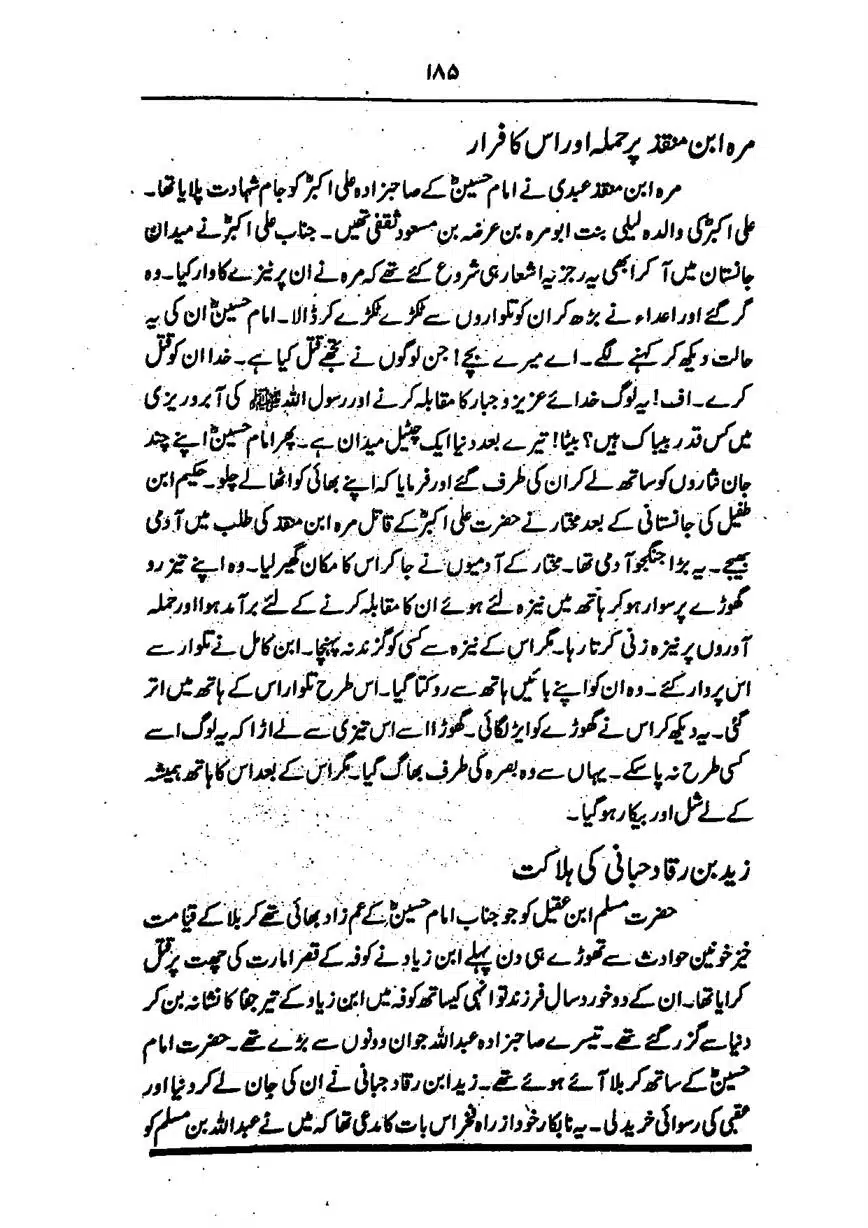 ۱۸۵
مرہ ابن منقذ پر حملہ اور اس کا فرار
مرہ ابن منقذ عبدی نے امام حسینؓ کے صاحبزادہ علی اکبرؓ کو جام شہادت پلایا تھا۔
علی اکبرؓ کی والدہ لیلی بنت ابو مرہ بن عرضہ بن مسعود ثقفی تھیں۔ جناب علی اکبرؓ نے میدان
جانستان میں آ کر ابھی یہ رجزیہ اشعار ہی شروع کئے تھے کہ مرہ نے ان پر نیزے کا وار کیا۔ وہ
گر گئے اور اعداء نے بڑھ کر ان کو تلواروں سے ٹکڑے ٹکڑے کر ڈالا۔ امام حسینؓ ان کی یہ
حالت دیکھ کر کہنے لگے۔ اے میرے بچے! جن لوگوں نے تجھے قتل کیا ہے۔ خدا ان کو قتل
کرے۔ اف! یہ لوگ خدائے عزیز و جبار کا مقابلہ کرنے اور رسول اللہ ﷺ کی آبروریزی
میں کس قدر بیباک ہیں؟ بیٹا! تیرے بعد دنیا ایک چٹیل میدان ہے۔ پھر امام حسینؓ اپنے چند
جان نثاروں کو ساتھ لے کر ان کی طرف گئے اور فرمایا کہ اپنے بھائی کو اٹھا لے چلو۔ حکیم ابن
طفیل کی جانستانی کے بعد مختار نے حضرت علی اکبرؓ کے قاتل مرہ ابن منقذ کی طلب میں آدمی
بھیجے۔ یہ بڑا جنگجو آدمی تھا۔ مختار کے آدمیوں نے جا کر اس کا مکان گھیر لیا۔ وہ اپنے تیز رو
گھوڑے پر سوار ہو کر ہاتھ میں نیزہ لئے ہوئے ان کا مقابلہ کرنے کے لئے برآمد ہوا اور حملہ
آوروں پر نیزہ زنی کرتا رہا۔ مگر اس کے نیزہ سے کسی کو گزند نہ پہنچا۔ ابن کامل نے تلوار سے
اس پر وار کئے۔ وہ ان کو اپنے بائیں ہاتھ سے روکتا گیا۔ اس طرح تلوار اس کے ہاتھ میں اتر
گئی۔ یہ دیکھ کر اس نے گھوڑے کو ایڑ لگائی۔ گھوڑا اسے اس تیزی سے لے اڑا کہ یہ لوگ اسے
کسی طرح نہ پا سکے۔ یہاں سے وہ بصرہ کی طرف بھاگ گیا۔ مگر اس کے بعد اس کا ہاتھ ہمیشہ
کے لئے شل اور بیکار ہو گیا۔
زید بن رقاد حبانی کی ہلاکت
حضرت مسلم ابن عقیل کو جو جناب امام حسینؓ کے عم زاد بھائی تھے کربلا کے قیامت
خیز خونین حوادث سے تھوڑے ہی دن پہلے ابن زیاد نے کوفہ کے قصر امارت کی چھت پر قتل
کرایا تھا۔ ان کے دو خورد سال فرزند تو انہی کیساتھ کوفہ میں ابن زیاد کے تیر جفا کا نشانہ بن کر
دنیا سے گزر گئے تھے۔ تیسرے صاحبزادہ عبداللہ جو ان دونوں سے بڑے تھے۔ حضرت امام
حسینؓ کے ساتھ کربلا آئے ہوئے تھے۔ زید ابن رقاد جبانی نے ان کی جان لے کر دنیا اور
عقبی کی رسوائی خرید لی۔ یہ نابکار خود از راہ فخر اس بات کا مدعی تھا کہ میں نے عبداللہ بن مسلم کو